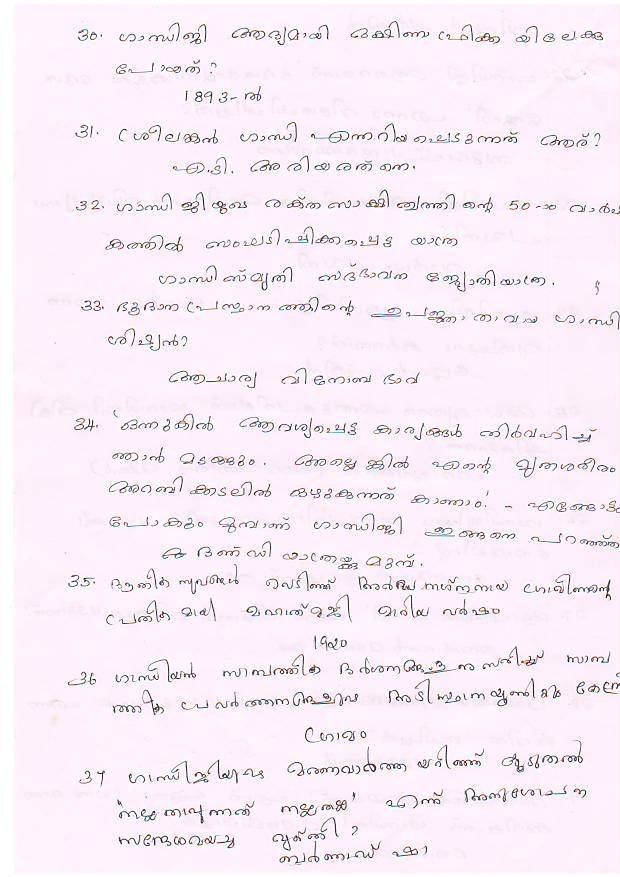 30. ഗാന്ധിജി ആദ്യമായി ദക്ഷിണാഫ്രിക്ക യിലേക്കു
പോയത്?
1893-ൽ
31. ശ്രീലങ്കൻ ഗാന്ധി എന്നറിയപ്പെടുന്നത് ആര്?
എ.ടി. അരിയരത്നെ.
32. ഗാന്ധിജിയുടെ രക്തസാക്ഷിത്വത്തിന്റെ 50-ാം വാർഷി
കത്തിൽ സംഘടിപ്പിക്കപ്പെട്ട യാത്ര
ഗാന്ധിസ്മൃതി സദ്ഭാവന ജ്യോതിയാത്ര.
33. ഭൂദാന പ്രസ്ഥാനത്തിന്റെ ഉപജ്ഞാതാവായ ഗാന്ധി
ശിഷ്യൻ?
ആചാര്യ വിനോബ ഭാവ
34. 'ഒന്നുകിൽ ആവശ്യപ്പെട്ട കാര്യങ്ങൾ നിർവഹിച്ച്
ഞാൻ മടങ്ങും. അല്ലെങ്കിൽ എന്റെ മൃതശരീരം
അറബിക്കടലിൽ ഒഴുകുന്നത് കാണാം' - എങ്ങോട്ടു
പോകും മുമ്പാണ് ഗാന്ധിജി ഇങ്ങനെ പറഞ്ഞത്
ദണ്ഡിയാത്രയ്ക്കു മുമ്പ്.
35. ഭൗതിക സുഖങ്ങൾ വെടിഞ്ഞ് അർദ്ധനഗ്നനായ ഗ്രാമീണന്റെ
പ്രതീകമായി മഹാത്മജി മാറിയ വർഷം
1920
36 ഗാന്ധിയൻ സാമ്പത്തിക ദർശനങ്ങളനുസരിച്ച് സാമ്പ
ത്തിക പ്രവർത്തനങ്ങളുടെ അടിസ്ഥാനയൂണിറ്റും കേന്ദ്ര
ഗ്രാമം
37 ഗാന്ധിജിയുടെ മരണവാർത്തയറിഞ്ഞ് കൂടുതൽ
'നല്ലതാവുന്നത് നല്ലതല്ല' എന്ന് അനുശോചന
സന്ദേശമയച്ച വ്യക്തി?
ബർണാഡ് ഷാ